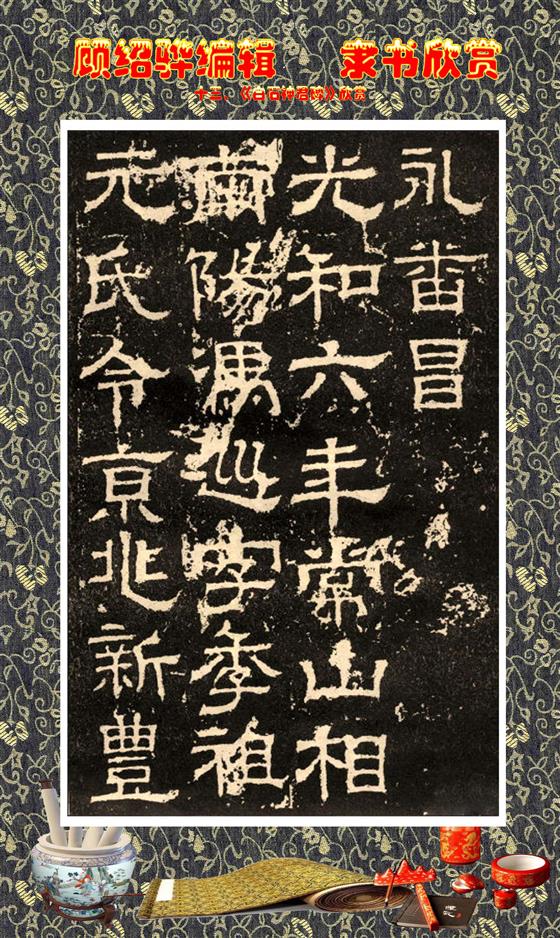 顾绍骅编辑 隶书欣赏
十三、《白石神君碑》欣赏
永番昌
光和六年常山相
南陽馮巡字季祖
元氏令京兆新豐